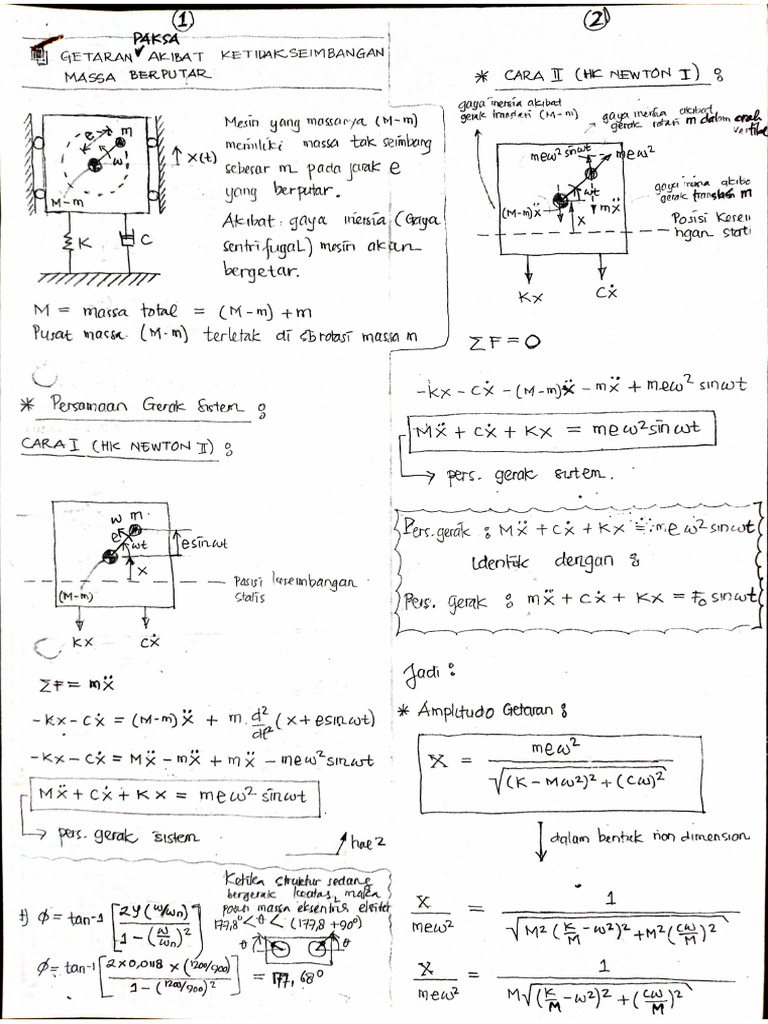 ①
PAKSA
GETARAN AKIBAT KETIDAKSEIMBANGAN
MASSA BERPUTAR
e
m
ω
M-m
X(t)
K
C
Mesin yang massanya (M-m)
memiliki massa tak seimbang
sebesar m pada jarak e
yang berputar.
Akibat gaya inersia (Gaya
sentrifugal) mesin akan
bergetar.
M = massa total = (M-m) + m
Pusat massa (M-m) terletak di sb rotasi massa m
* Persamaan Gerak Sistem :
CARA I (HK NEWTON II) :
ω
m
e
ωt
e sin ωt
x
(M-m)
Posisi keseimbangan
statis
Kx
Cẋ
ΣF = mẍ
-Kx - Cẋ = (M-m)ẍ + m. d²/dt² (x + e sin ωt)
-Kx - Cẋ = Mẍ - mẍ + mẍ - meω² sin ωt
Mẍ + Cẋ + Kx = meω² sin ωt
pers. gerak sistem
hal 2
Ketika struktur sedang
bergerak keatas, maka
posisi massa eksentris
177,8° < θ < (177,8 + 90°)
θ
θ
Φ = tan-1 [2ϒ(ω/ωn) / 1 - (ω/ωn)²]
Φ = tan-1 [2 x 0,0118 x (1200/900) / 1 - (1200/900)²] = 177,68°
②
* CARA II (HK NEWTON I) :
gaya inersia akibat
gerak translasi (M-m)
gaya inersia akibat
gerak rotasi m dalam arah
vertikal
meω² sin ωt
meω²
ωt
(M-m)ẍ
mẍ
x
gerak translasi m
Posisi Kesei
ngan stati
Kx
Cẋ
ΣF = 0
-Kx - Cẋ - (M-m)ẍ - mẍ + meω² sin ωt
Mẍ + Cẋ + Kx = meω² sin ωt
pers. gerak sistem.
Pers. gerak : Mẍ + Cẋ + Kx = meω² sin ωt
Identik dengan :
Pers. gerak : mẍ + Cẋ + Kx = F₀ sin ωt
Jadi :
* Amplitudo Getaran :
X = meω² / √(K - Mω²)² + (Cω)²
dalam bentuk non dimension
X / meω² = 1 / √M² (K/M - ω²)² + M² (Cω/M)²
X / meω² = 1 / M√(K/M - ω²)² + (Cω/M)²